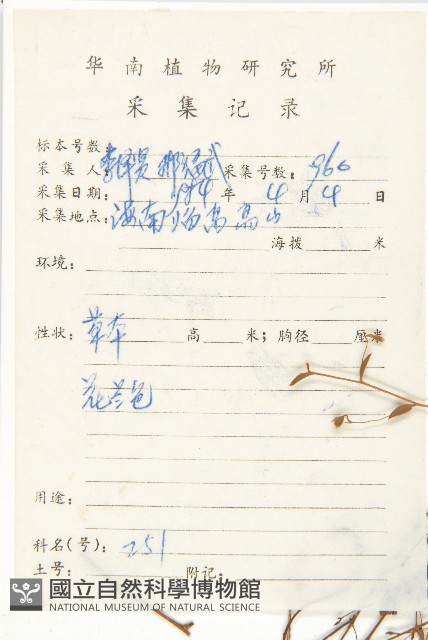 华南植物研究所
采集记录
标本号数:
采集人: 采集号数: 960
采集日期: 1974年 4月 4日
采集地点: 海南 高山
海拨 米
环境:
性状: 草本 高 米; 胸径 厘米
花兰色
用途:
科名(号): 251
土号: 附记:
國立自然科學博物館
NATIONAL MUSEUM OF NATURAL SCIENCE